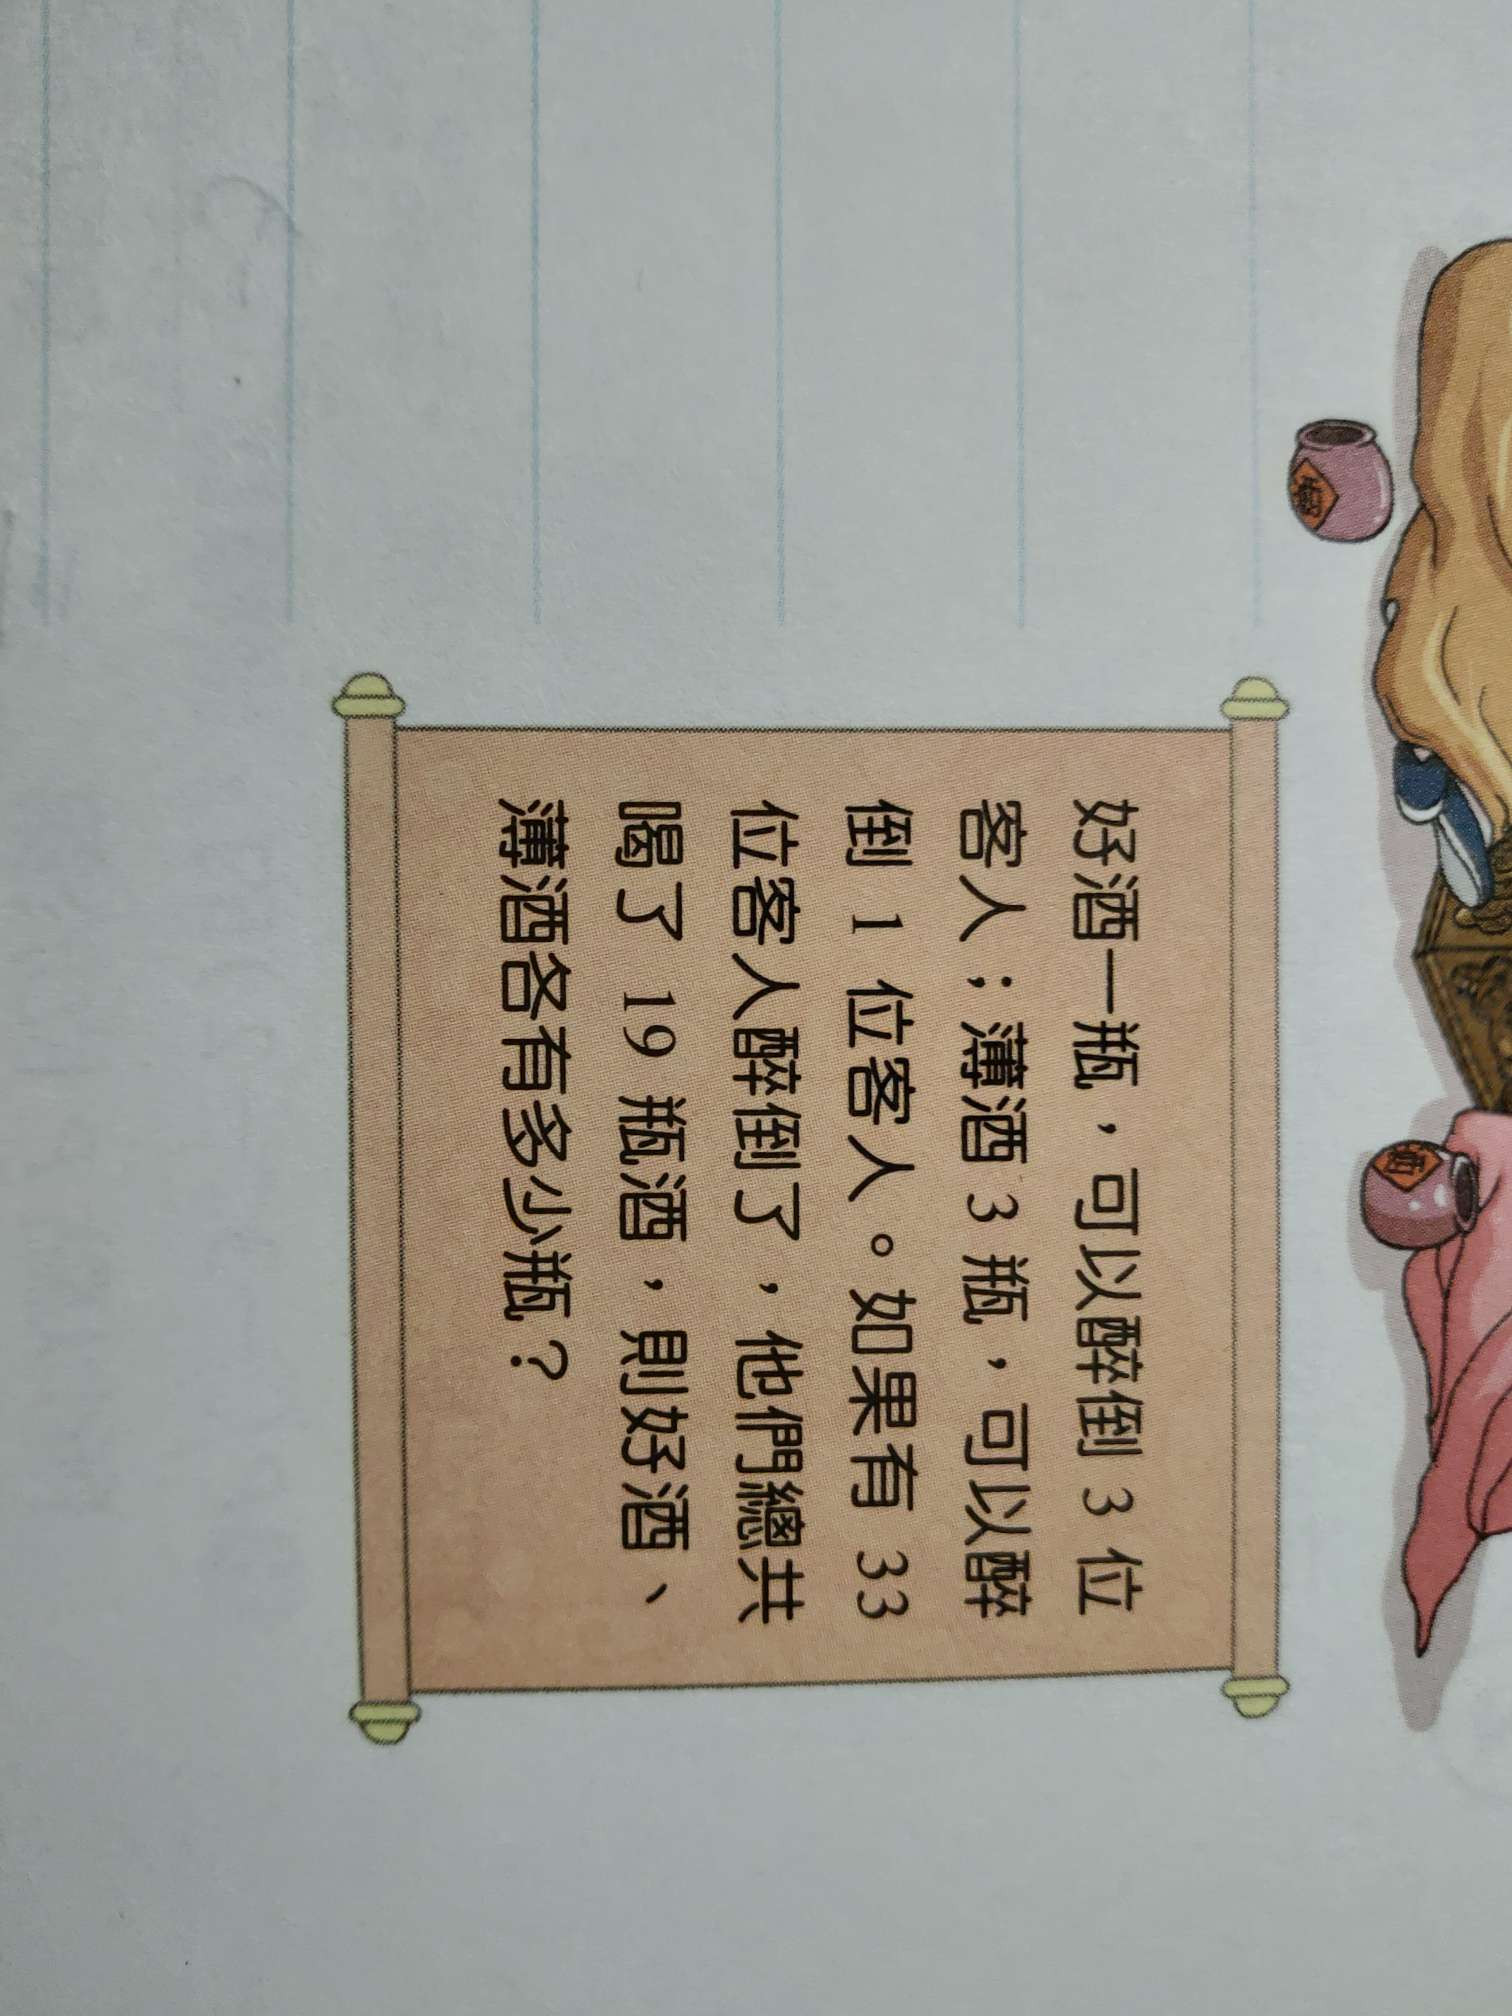 好酒一瓶，可以醉倒 3 位
客人；薄酒 3 瓶，可以醉
倒 1 位客人。如果有 33
位客人醉倒了，他們總共
喝了 19 瓶酒，則好酒、
薄酒各有多少瓶？
酒
酒